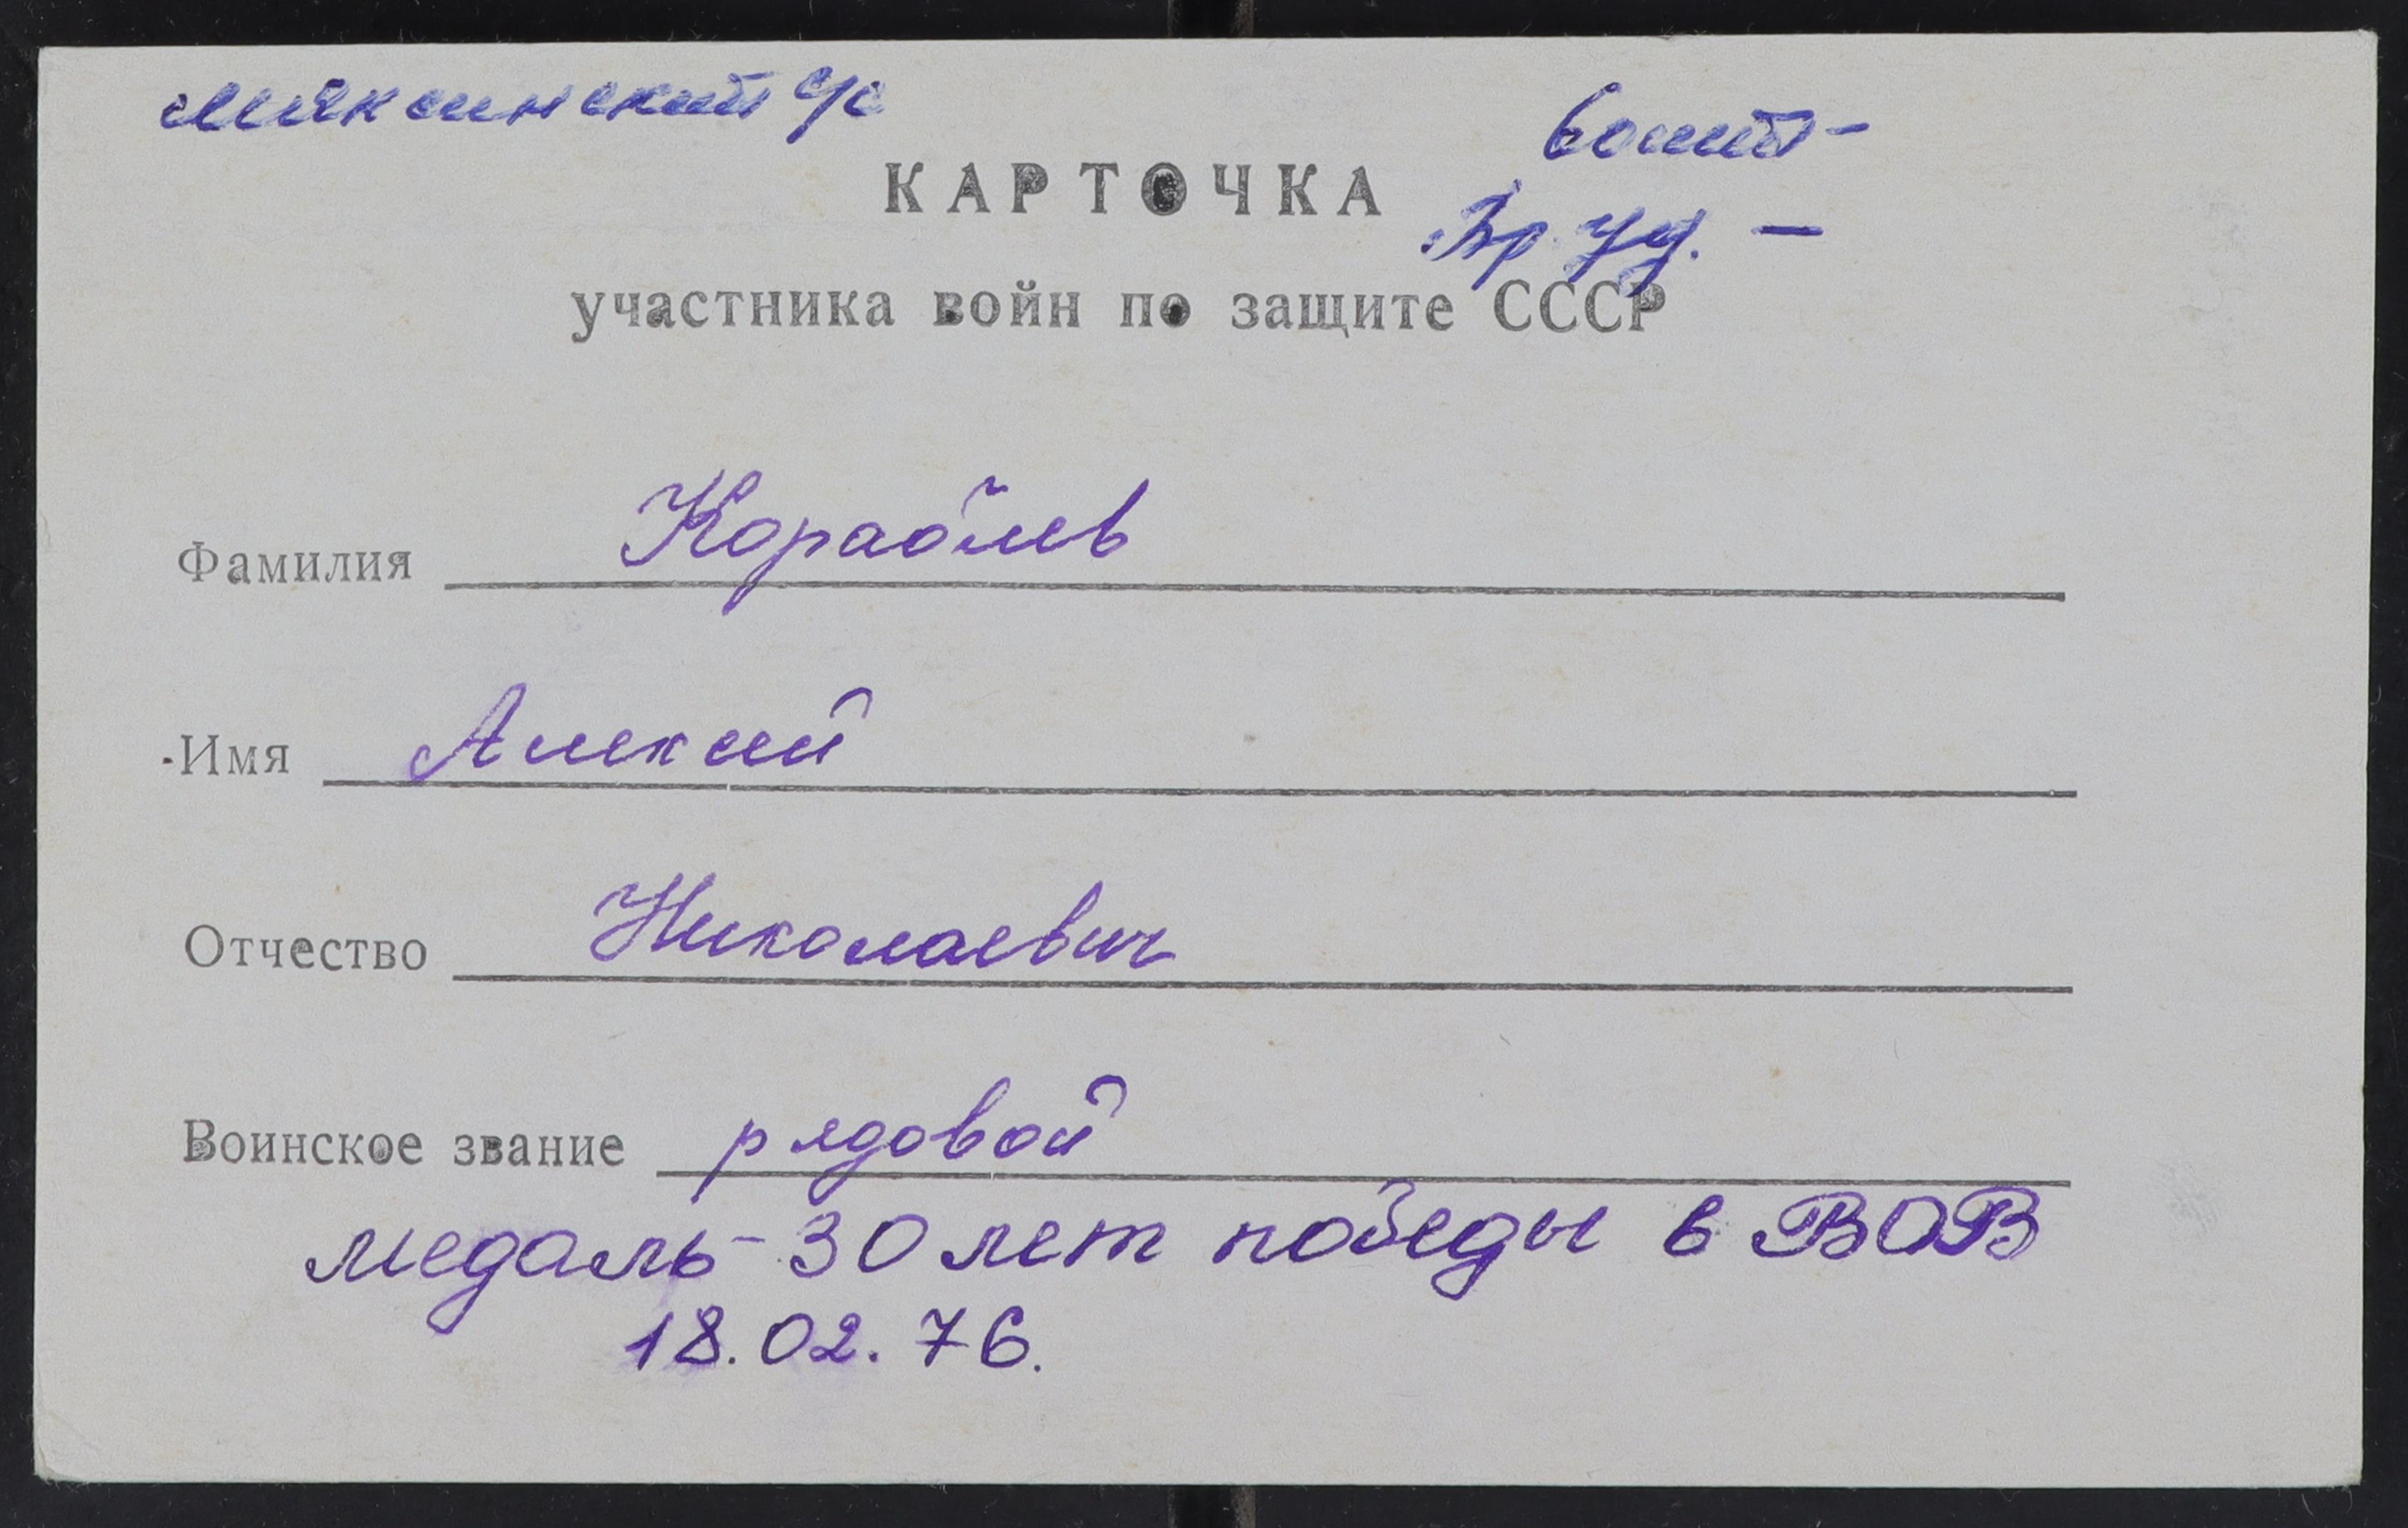 Мяксинский с/с
КАРТОЧКА
Вр. уд. —
участника войн по защите СССР
Фамилия Кораблев
Имя Алексей
Отчество Николаевич
Воинское звание рядовой
медаль - 30 лет победы в ВОВ
18.02.76.